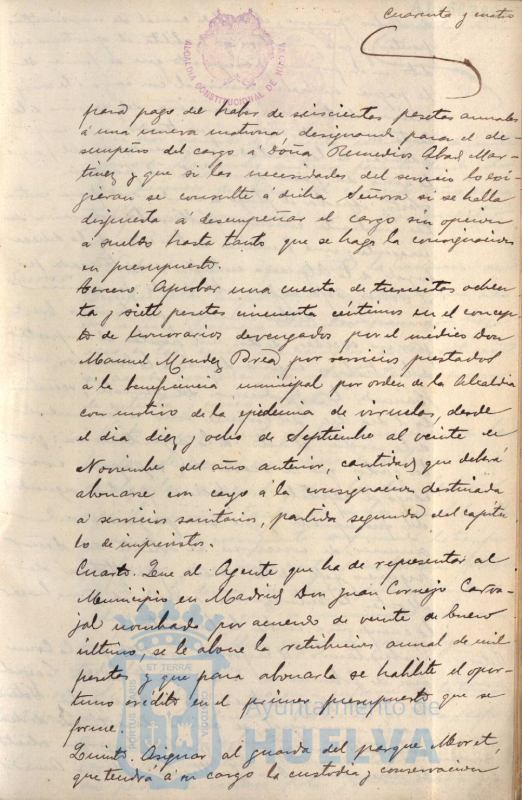 Cuarenta y cuatro
ALCALDIA CONSTITUCIONAL DE HUELVA
para pago del haber de seiscientas pesetas anuales
á una nueva matrona, designando para el de-
sempeño del cargo á Doña Remedios Abad Mar-
tinez y que si las necesidades del servicio lo exi-
gieran se consulte á dicha Señora si se halla
dispuesta á desempeñar el cargo sin opcion
á sueldo hasta tanto que se haga la consignacion
en presupuesto.
Tercero. Aprobar una cuenta de trescientas ochen-
ta y siete pesetas cincuenta céntimos en el concep-
to de honorarios devengados por el médico Don
Manuel Mendez Brea, por servicios prestados
á la beneficencia municipal por orden de la Alcaldia
con motivo de la epidemia de viruelas, desde
el dia diez y ocho de Septiembre al veinte de
Noviembre del año anterior, cantidad que deberá
abonarse con cargo á la consignacion destinada
á servicios sanitarios, partida segunda del capitu-
lo de imprevistos.
Cuarto. Que al Agente que ha de representar al
Municipio en Madrid Don Juan Cornejo Carva-
jal nombrado por acuerdo de veinte de Enero
último, se le abone la retribucion anual de mil
pesetas y que para abonarla se habilite el opor-
tuno crédito en el primer presupuesto que se
forme.
Quinto. Asignar al guarda del parque Moret,
que tendrá á su cargo la custodia y conservacion
PORTUS MARIS ET TERRÆ CUSTODIA
Ayuntamiento de
HUELVA